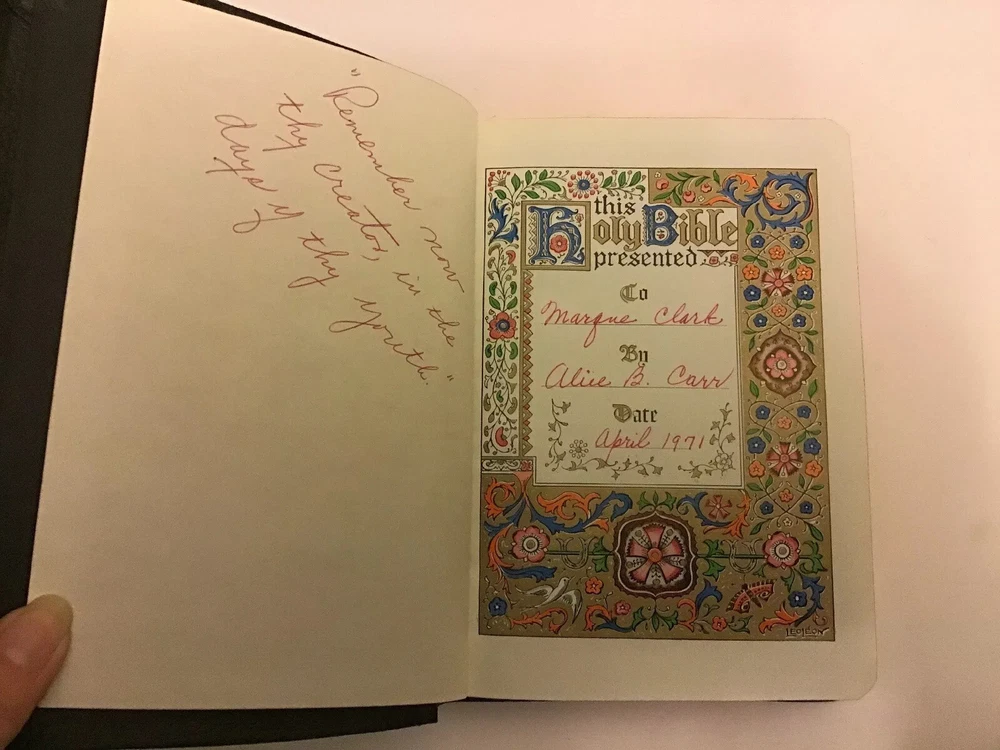 "Remember now
thy creator, in the
days of thy youth."
this
Holy Bible
presented
To
Marque Clark
By
Alice B. Carr
Date
April 1971
LEO LEON